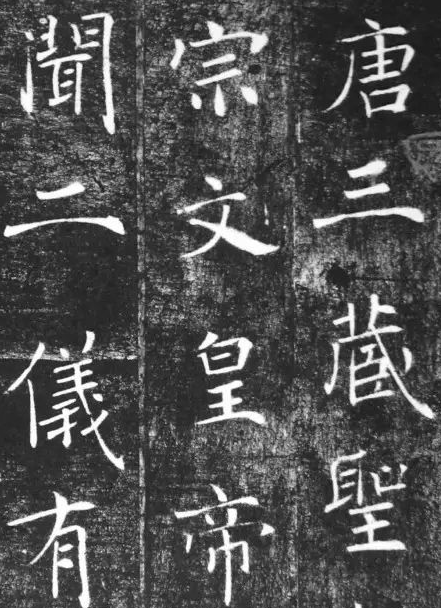 唐三藏聖
宗文皇帝
聞二儀有